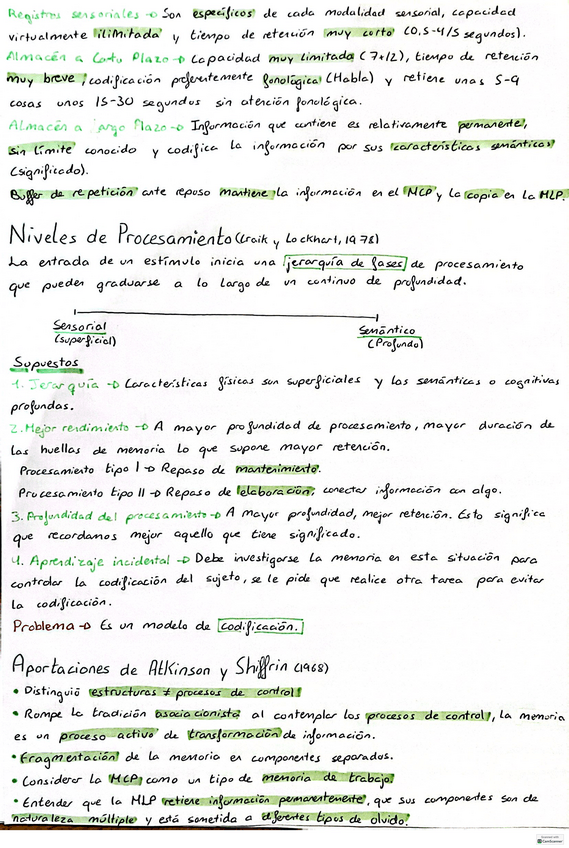 Registros sensoriales → Son específicos de cada modalidad sensorial, capacidad
virtualmente ilimitada y tiempo de retención muy corto (0.5-4/5 segundos).
Almacén a Corto Plazo → Capacidad muy limitada (7±2), tiempo de retención
muy breve, codificación preferentemente fonológica (Habla) y retiene unas 5-9
cosas unos 15-30 segundos sin atención fonológica.
Almacén a Largo Plazo → Información que contiene es relativamente permanente,
sin límite conocido y codifica la información por sus características semánticas
(significado).
Buffer de repetición ante repaso mantiene la información en el MCP y la copia en la MLP.
Niveles de Procesamiento (Craik y Lockhart, 1978)
La entrada de un estímulo inicia una jerarquía de fases de procesamiento
que pueden graduarse a lo largo de un continuo de profundidad.
Sensorial Semántico
(superficial) (Profundo)
Supuestos
1. Jerarquía → Características físicas son superficiales y las semánticas o cognitivas
profundas.
2. Mejor rendimiento → A mayor profundidad de procesamiento, mayor duración de
las huellas de memoria lo que supone mayor retención.
Procesamiento tipo I → Repaso de mantenimiento.
Procesamiento tipo II → Repaso de elaboración, conectar información con algo.
3. Profundidad del procesamiento → A mayor profundidad, mejor retención. Esto significa
que recordamos mejor aquello que tiene significado.
4. Aprendizaje incidental → Debe investigarse la memoria en esta situación para
controlar la codificación del sujeto, se le pide que realice otra tarea para evitar
la codificación.
Problema → Es un modelo de codificación.
Aportaciones de Atkinson y Shiffrin (1968)
• Distinguió estructuras ≠ procesos de control.
• Rompe la tradición asociacionista al contemplar los procesos de control, la memoria
es un proceso activo de transformación de información.
• Fragmentación de la memoria en componentes separados.
• Considerar la MCP como un tipo de memoria de trabajo.
• Entender que la MLP retiene información permanentemente, que sus componentes son de
naturaleza múltiple y está sometida a diferentes tipos de olvido.
CamScanner